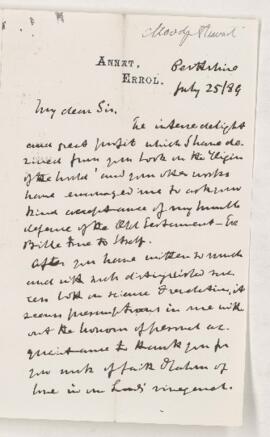 Moody Stuart
Annat,
Errol.
Perthshire
July 25/89
My dear Sir,
The intense delight
and great profit which I have de-
rived from your book on the 'Origin
of the World' and your other works
have encouraged me to ask your
kind acceptance of my humble
defence of the Old Testament - The
Bible true to itself.
After you have written so much
and with such distinguished suc-
cess both on science & revelation, it
seems presumptuous in me with
out the honour of personal ac-
quaintance to thank you for
your work of faith & labour of
love in our Lord's vineyard.